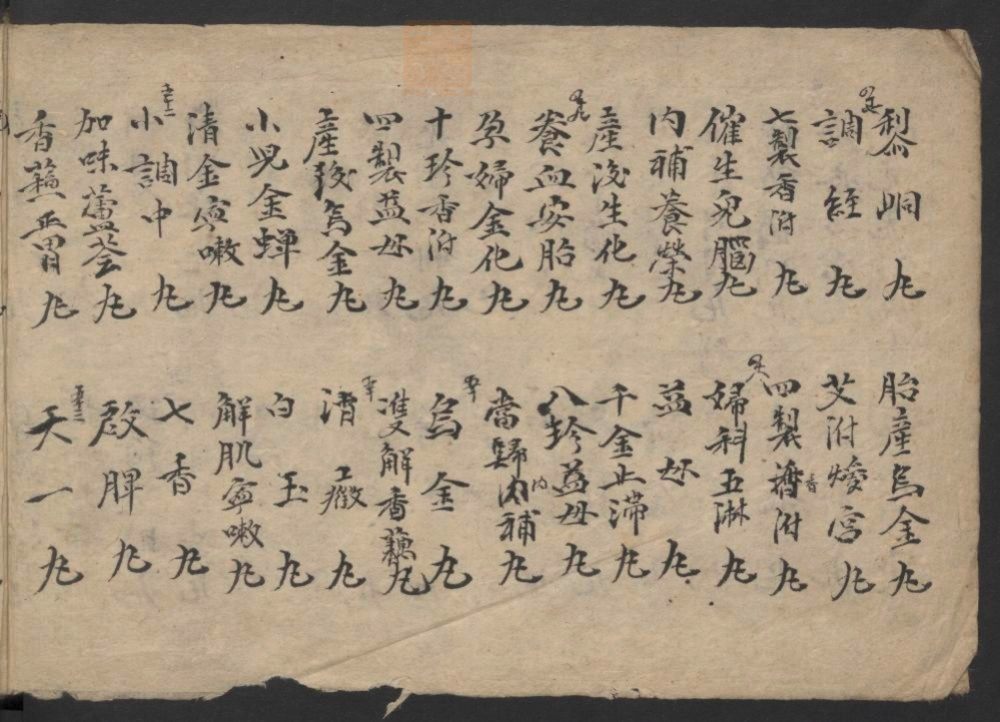 黎峒丸
調經丸
七製香附丸
催生兎腦丸
內補養榮丸
產後生化丸
養血安胎丸
孕婦金化丸
十珍香附丸
四製益母丸
產後烏金丸
小兒金蟬丸
清金寧嗽丸
小調中丸
加味蘆薈丸
香蘓平胃丸
胎產烏金丸
艾附煖宮丸
四製香附丸
婦科五淋丸
益母丸
千金止滯丸
八珍益母丸
當歸內補丸
烏金丸
雙解香蘓丸
丸
白玉丸
解肌寧嗽丸
七香丸
啟脾丸
天一丸